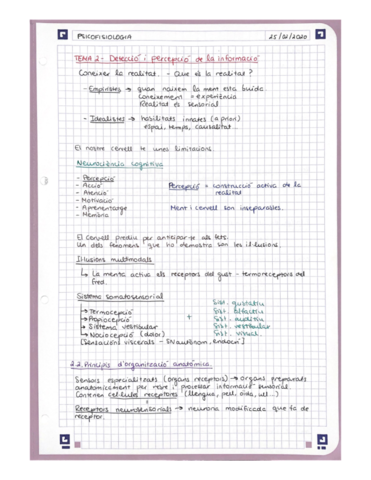 PSICOFISIOLOGIA 25/02/2020
TEMA 2 - Detecció i percepció de la informació
Conèixer la realitat. - Què és la realitat?
- Empiristes → quan naixem la ment està buida
Coneixement = experiència
Realitat és sensorial
- Idealistes → habilitats innates (a priori)
espai, temps, causalitat...
El nostre cervell té unes limitacions.
Neurociència cognitiva
- Percepció
- Acció
- Atenció
- Motivació
- Aprenentatge
- Memòria
Percepció = construcció activa de la
realitat
Ment i cervell són inseparables.
El cervell prediu per anticipar-se als fets.
Un dels fenòmens que ho demostra són les il·lusions.
Il·lusions multimodals
↳ La menta activa els receptors del gust - termoreceptors del
fred.
Sistema somatosensorial
→ Termocepció
→ Propiocepció
→ Sistema vestibular
→ Nociocepció (dolor)
[Sensacions viscerals - SN autònom, endocrí]
+
Sist. gustatiu
Sist. olfactiu
Sist. auditiu
Sist. vestibular
Sist. visual
2.2. Principis d'organització anatòmica.
Sensors especialitzats (òrgans receptors) → òrgans preparats
anatòmicament per rebre i processar informació sensorial.
Contenen cèl·lules receptores (llengua, pell, oïda, ull...)
Receptors neurosensorials → neurona modificada que fa de
receptor.